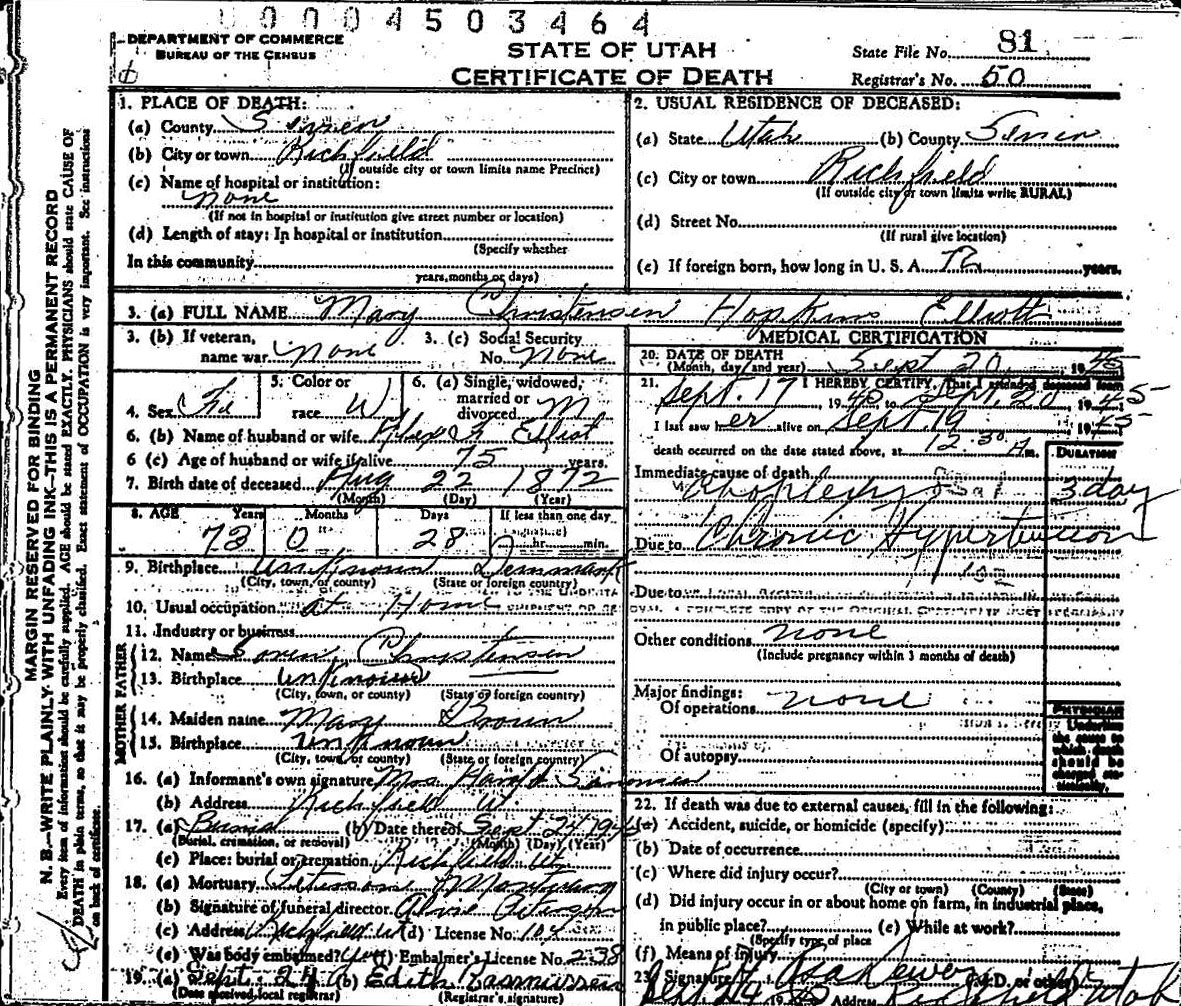 00004503464
DEPARTMENT OF COMMERCE
BUREAU OF THE CENSUS
STATE OF UTAH
CERTIFICATE OF DEATH
State File No. 81
Registrar's No. 50
MARGIN RESERVED FOR BINDING
N. B.—WRITE PLAINLY, WITH UNFADING INK—THIS IS A PERMANENT RECORD
Every item of information should be carefully supplied. AGE should be stated EXACTLY. PHYSICIANS should state CAUSE OF
DEATH in plain terms, so that it may be properly classified. Exact statement of OCCUPATION is very important. See instructions
on back of certificate.
1. PLACE OF DEATH:
(a) County Sevier
(b) City or town Richfield
(If outside city or town limits name Precinct)
(c) Name of hospital or institution:
none
(If not in hospital or institution give street number or location)
(d) Length of stay: In hospital or institution
(Specify whether
In this community
years, months or days)
2. USUAL RESIDENCE OF DECEASED:
(a) State Utah (b) County Sevier
(c) City or town Richfield
(If outside city or town limits write RURAL)
(d) Street No.
(If rural give location)
(e) If foreign born, how long in U. S. A. 72 years.
3. (a) FULL NAME Mary Christensen Hopkins Elliott
3. (b) If veteran, name war none
3. (c) Social Security No. none
4. Sex Fe
5. Color or race W
6. (a) Single, widowed, married or divorced M
6. (b) Name of husband or wife Elliot
6 (c) Age of husband or wife if alive 75 years.
7. Birth date of deceased Aug 22 1872
(Month) (Day) (Year)
8. AGE Years Months Days If less than one day
73 0 28 hr. min.
9. Birthplace unknown Denmark
(City, town, or county) (State or foreign country)
10. Usual occupation at Home
11. Industry or business
FATHER
12. Name Soren Christensen
13. Birthplace unknown
(City, town, or county) (State or foreign country)
MOTHER
14. Maiden name Mary Brown
15. Birthplace unknown
(City, town, or county) (State or foreign country)
16. (a) Informant's own signature Mrs
(b) Address Richfield U.
17. (a) Burial (b) Date thereof Sept 24 194
(Burial, cremation, or removal) (Month) (Day) (Year)
(c) Place: burial or cremation Richfield Ut
18. (a) Mortuary Mortuary
(b) Signature of funeral director
(c) Address Richfield Ut (d) License No. 104
(e) Was body embalmed? yes (f) Embalmer's License No. 238
19. (a) Sept 24 (b) Edith Rasmussen
(Date received local registrar) (Registrar's signature)
MEDICAL CERTIFICATION
20. DATE OF DEATH
(Month, day and year) Sept 20 1945
21. I HEREBY CERTIFY, That I attended deceased from
Sept. 17 1945, to Sept. 20 1945
I last saw her alive on Sept 19 1945
death occurred on the date stated above, at 12:30 A m.
DURATION
Immediate cause of death
Apoplexy 3 day
Due to Chronic Hypertension
Due to
Other conditions none
(Include pregnancy within 3 months of death)
Major findings:
Of operations none
Of autopsy
PHYSICIAN
Underline
the cause to
which death
should be
charged sta-
tistically.
22. If death was due to external causes, fill in the following:
(a) Accident, suicide, or homicide (specify)
(b) Date of occurrence
(c) Where did injury occur?
(City or town) (County) (State)
(d) Did injury occur in or about home on farm, in industrial place,
in public place? (e) While at work?
(Specify type of place
(f) Means of injury
23. Signature (M.D. or other)
Address Richfield Utah